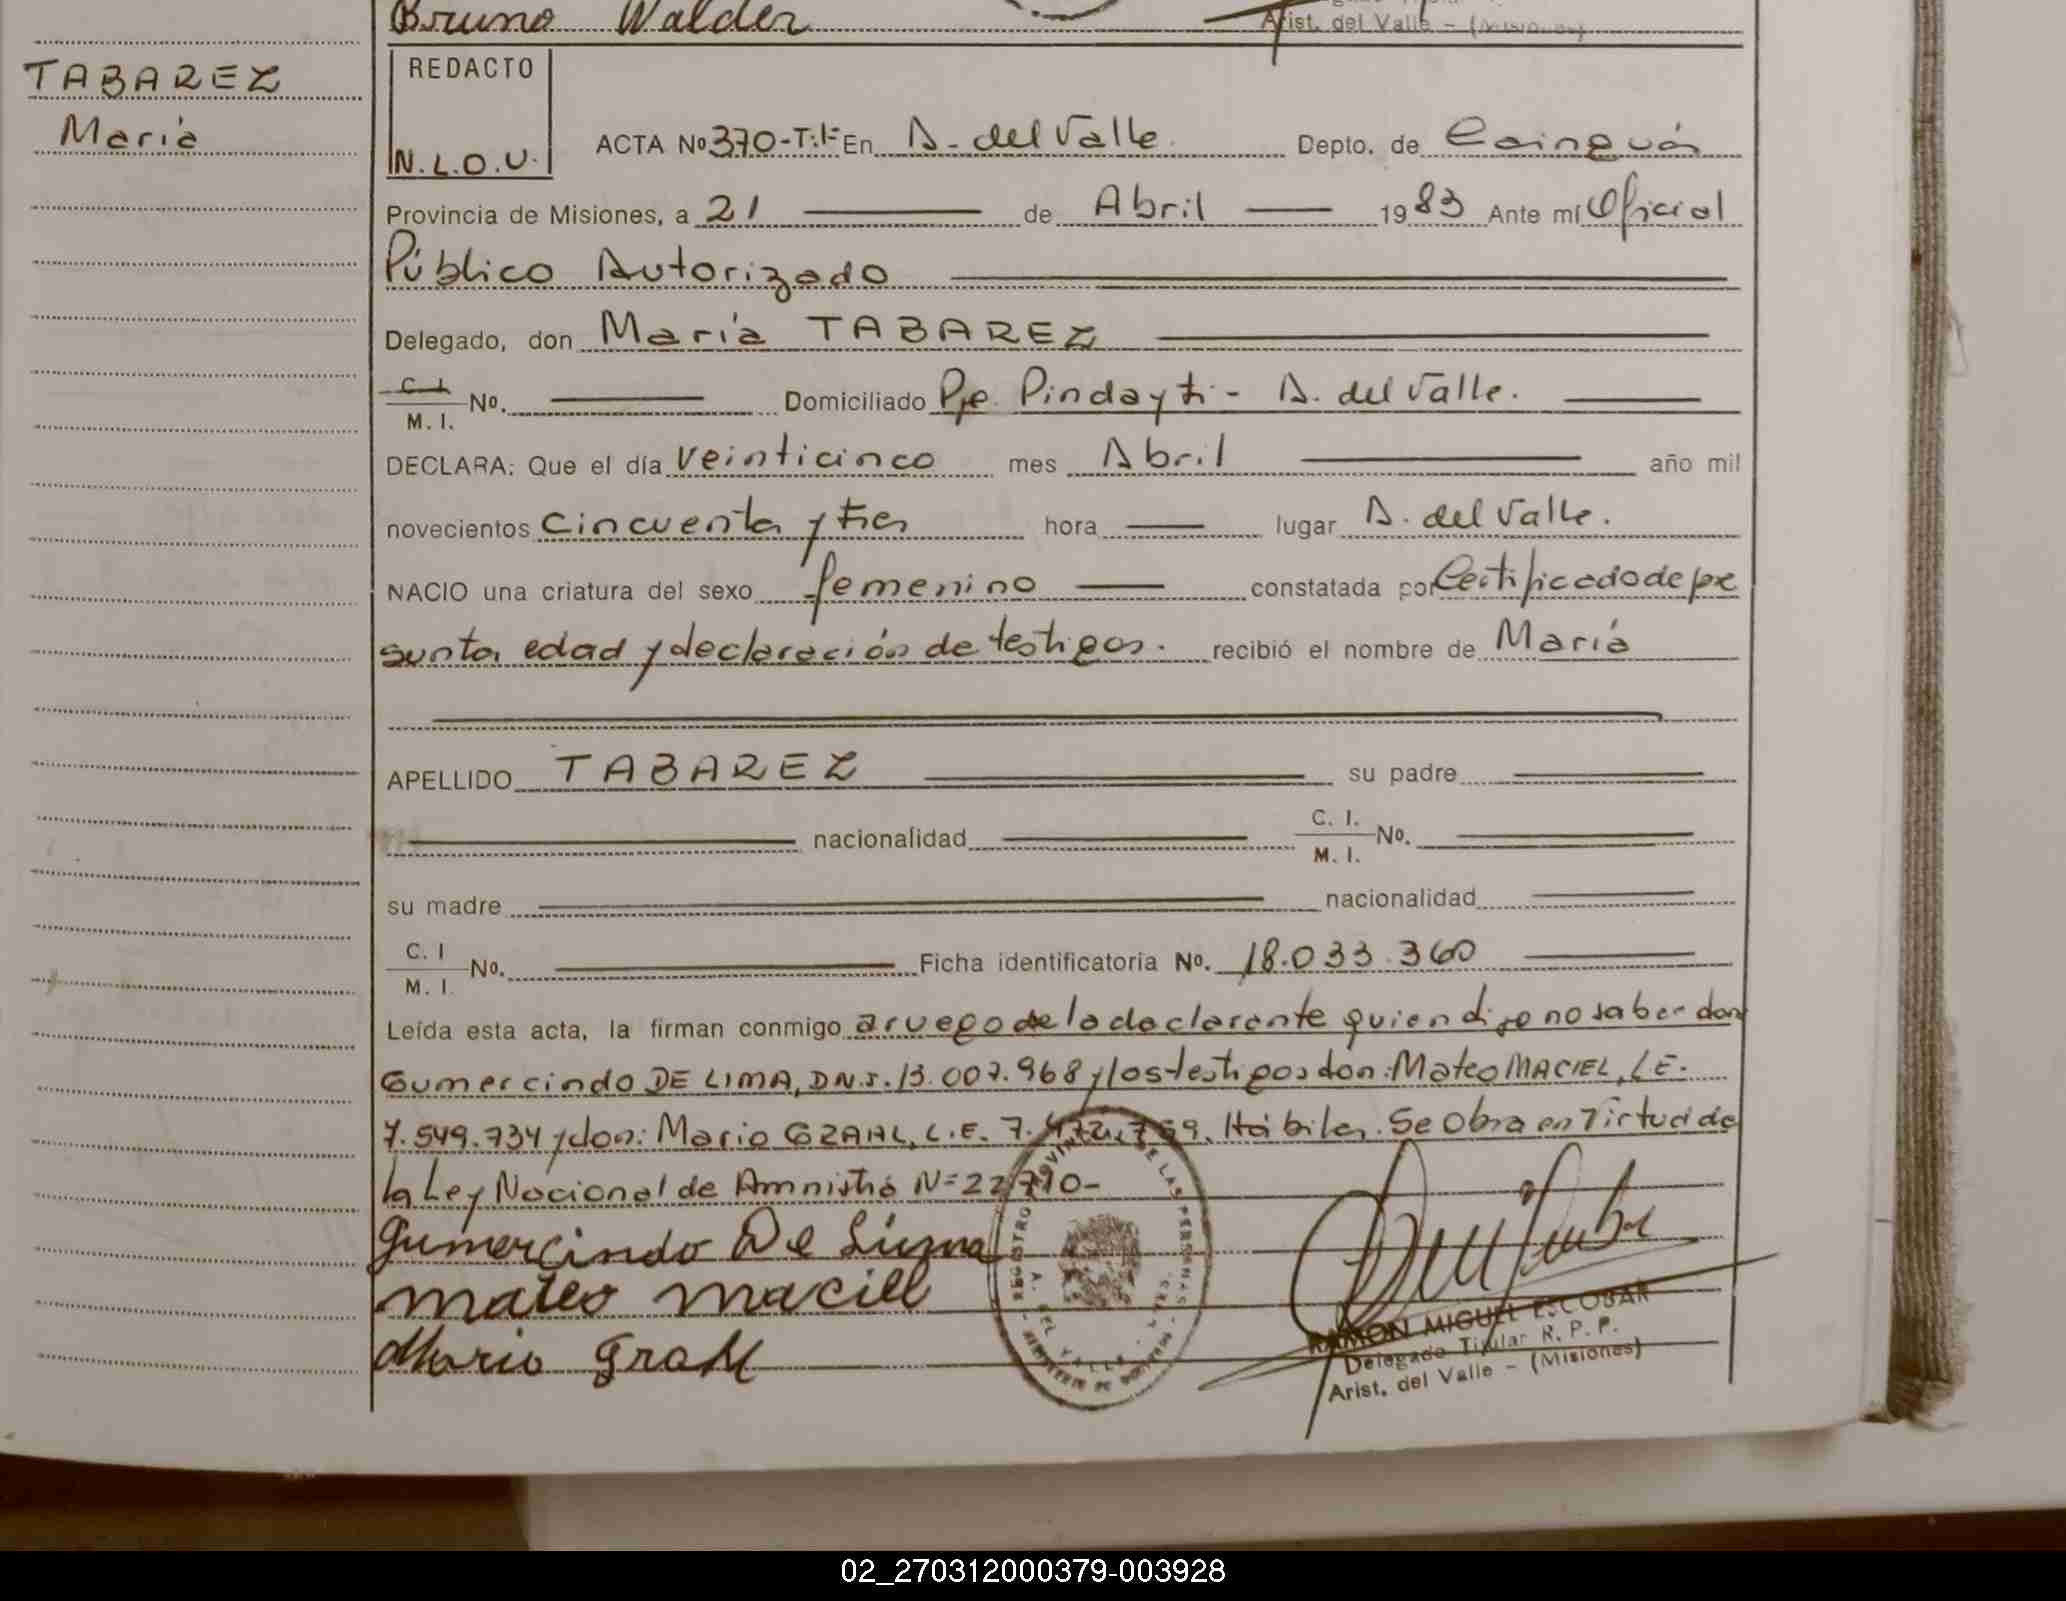 Bruno Walder
Arist. del Valle - (Misiones)
TABAREZ
María
REDACTO
N.L.O.U.
ACTA Nº 370-T:I- En A. del Valle. Depto. de Cainguás
Provincia de Misiones, a 21 de Abril 1983 Ante mí Oficial
Público Autorizado
Delegado, don María TABAREZ
C. I. / M. I. Nº. Domiciliado Pje. Pindayti - A. del Valle.
DECLARA: Que el día veinticinco mes Abril año mil
novecientos cincuenta y tres hora lugar A. del Valle.
NACIO una criatura del sexo femenino constatada por Certificado de pre
sunta edad y declaración de testigos. recibió el nombre de María
APELLIDO TABAREZ su padre
nacionalidad C. I. / M. I. Nº.
su madre nacionalidad
C. I / M. I. Nº. Ficha identificatoria Nº. 18.033.360
Leída esta acta, la firman conmigo a ruego de la declarante quien dijo no saber don
Gumercindo DE LIMA, D.N.I. 13.007.968 y los testigos don: Mateo MACIEL, L.E.
7.549.734 y don: Mario GRAHL, L.E. 7.472.769. Hábiles. Se Obra en Virtud de
la Ley Nacional de Amnistía Nº 22710-
Gumercindo De Lima
mateo maciel
Mario Grahl
REGISTRO PROVINCIAL DE LAS PERSONAS
A. DEL VALLE - MNES.
RAMON MIGUEL ESCOBAR
Delegado Titular R. P. P.
Arist. del Valle - (Misiones)
02_270312000379-003928